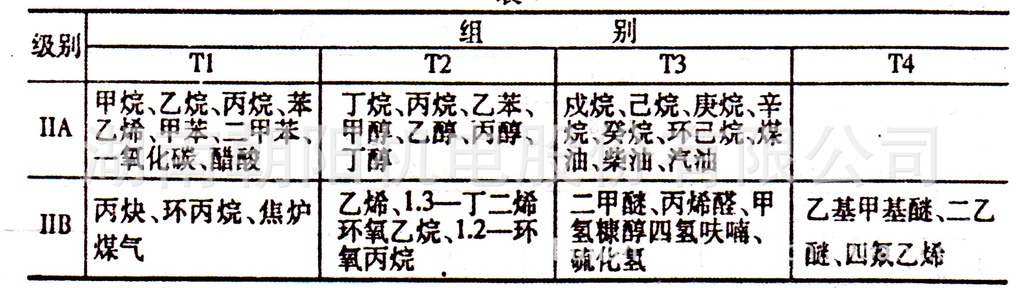 级别
组 别
T1
T2
T3
T4
IIA
甲烷、乙烷、丙烷、苯
乙烯、甲苯、二甲苯、
一氧化碳、醋酸
丁烷、丙烷、乙苯、
甲醇、乙醇、丙醇、
丁醇
戍烷、己烷、庚烷、辛
烷、癸烷、环己烷、煤
油、柴油、汽油
IIB
丙炔、环丙烷、焦炉
煤气
乙烯、1.3—丁二烯
环氧乙烷、1.2—环
氧丙烷
二甲醚、丙烯醛、甲
氢糠醇四氢呋喃、
硫化氢
乙基甲基醚、二乙
醚、四氟乙烯
湖南朝阳机电股份有限公司